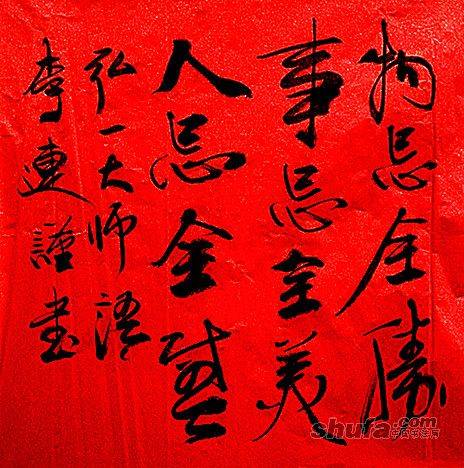 物忌全胜
事忌全美
人忌全盛
弘一大师语
李连谨书
shufa.com
中国书法网